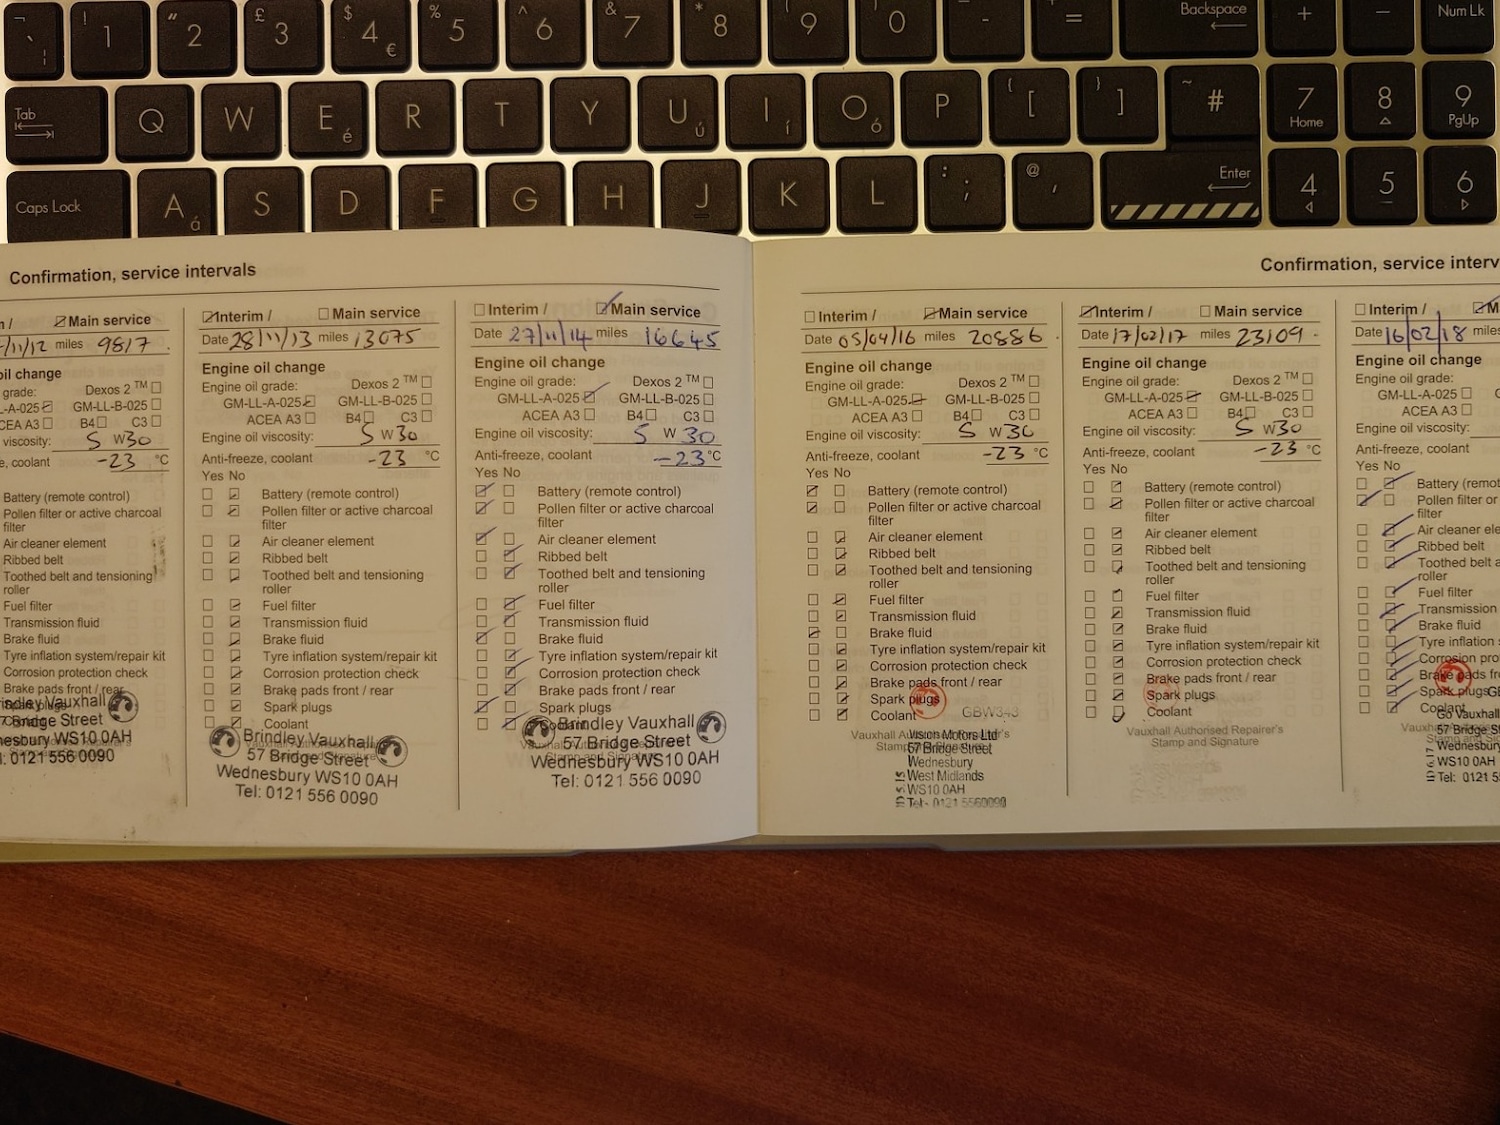 Backspace
Num Lk
1 2 3 4 € 5 6 7 8 9 0 - = + −
Tab Q W E é R T Y U ú I í O ó P [ ] ~ # 7 Home 8 9 PgUp
Caps Lock A á S D F G H J K L : ; @ ' Enter 4 5 6
Confirmation, service intervals
Main service
/11/12 miles 9817
oil change
grade: Dexos 2 TM
L-A-025 GM-LL-B-025
CEA A3 B4 C3
viscosity: 5 W30
e, coolant -23 °C
Battery (remote control)
Pollen filter or active charcoal
filter
Air cleaner element
Ribbed belt
Toothed belt and tensioning
roller
Fuel filter
Transmission fluid
Brake fluid
Tyre inflation system/repair kit
Corrosion protection check
Brake pads front / rear
Spark plugs
Coolant
Vauxhall
Bridge Street
nesbury WS10 0AH
: 0121 556 0090
Interim / Main service
Date 28/11/13 miles 13075
Engine oil change
Engine oil grade: Dexos 2 TM
GM-LL-A-025 GM-LL-B-025
ACEA A3 B4 C3
Engine oil viscosity: 5 W30
Anti-freeze, coolant -23 °C
Yes No
Battery (remote control)
Pollen filter or active charcoal
filter
Air cleaner element
Ribbed belt
Toothed belt and tensioning
roller
Fuel filter
Transmission fluid
Brake fluid
Tyre inflation system/repair kit
Corrosion protection check
Brake pads front / rear
Spark plugs
Coolant
Brindley Vauxhall
57 Bridge Street
Wednesbury WS10 0AH
Tel: 0121 556 0090
Interim / Main service
Date 27/11/14 miles 16645
Engine oil change
Engine oil grade: Dexos 2 TM
GM-LL-A-025 GM-LL-B-025
ACEA A3 B4 C3
Engine oil viscosity: 5 W 30
Anti-freeze, coolant -23°C
Yes No
Battery (remote control)
Pollen filter or active charcoal
filter
Air cleaner element
Ribbed belt
Toothed belt and tensioning
roller
Fuel filter
Transmission fluid
Brake fluid
Tyre inflation system/repair kit
Corrosion protection check
Brake pads front / rear
Spark plugs
Coolant
Brindley Vauxhall
57 Bridge Street
Wednesbury WS10 0AH
Tel: 0121 556 0090
Confirmation, service interv
Interim / Main service
Date 05/04/16 miles 20886
Engine oil change
Engine oil grade: Dexos 2 TM
GM-LL-A-025 GM-LL-B-025
ACEA A3 B4 C3
Engine oil viscosity: 5 W30
Anti-freeze, coolant -23 °C
Yes No
Battery (remote control)
Pollen filter or active charcoal
filter
Air cleaner element
Ribbed belt
Toothed belt and tensioning
roller
Fuel filter
Transmission fluid
Brake fluid
Tyre inflation system/repair kit
Corrosion protection check
Brake pads front / rear
Spark plugs
Coolant GBW343
Motors Ltd
57 Bridge Street
Wednesbury
West Midlands
WS10 0AH
Tel - 0121 5560090
Interim / Main service
Date 17/02/17 miles 23109
Engine oil change
Engine oil grade: Dexos 2 TM
GM-LL-A-025 GM-LL-B-025
ACEA A3 B4 C3
Engine oil viscosity: 5 W30
Anti-freeze, coolant -23 °C
Yes No
Battery (remote control)
Pollen filter or active charcoal
filter
Air cleaner element
Ribbed belt
Toothed belt and tensioning
roller
Fuel filter
Transmission fluid
Brake fluid
Tyre inflation system/repair kit
Corrosion protection check
Brake pads front / rear
Spark plugs
Coolant
Vauxhall Authorised Repairer's
Stamp and Signature
Interim / M
Date 16/02/18 miles
Engine oil change
Engine oil grade:
GM-LL-A-025
ACEA A3
Engine oil viscosity:
Anti-freeze, coolant
Yes No
Battery (remote
Pollen filter or
filter
Air cleaner elem
Ribbed belt
Toothed belt a
roller
Fuel filter
Transmission
Brake fluid
Tyre inflation s
Corrosion pro
Brake pads fron
Spark plugs
Coolant
Go Vauxhall
57 Bridge S
Wednesbury
WS10 0A
Tel: 0121 5